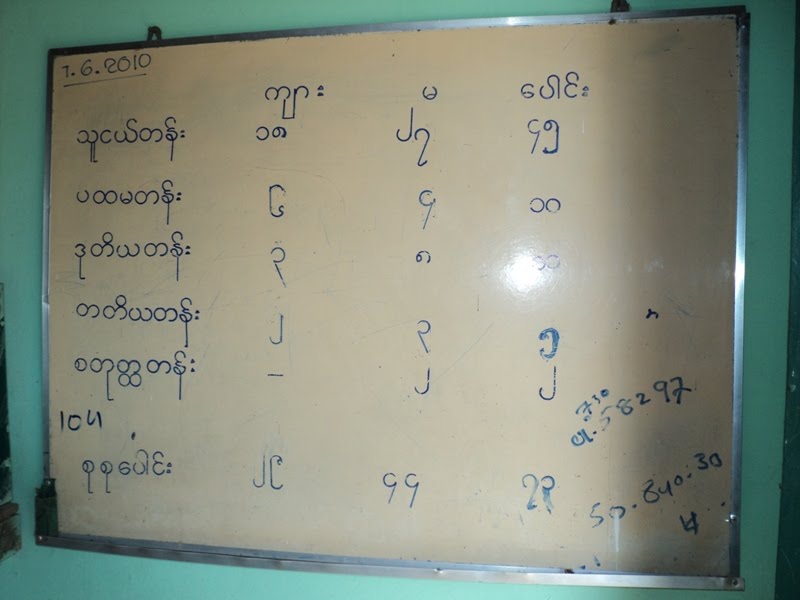 1.6.2010
ကျား မ ပေါင်း
သူငယ်တန်း ၁၈ ၂၇ ၄၅
ပထမတန်း ၆ ၄ ၁၀
ဒုတိယတန်း ၃ ၈ ၁၁
တတိယတန်း ၂ ၃ ၅
စတုတ္ထတန်း - ၂ ၂
58297
စုစုပေါင်း ၂၉ ၄၄ ၇၃